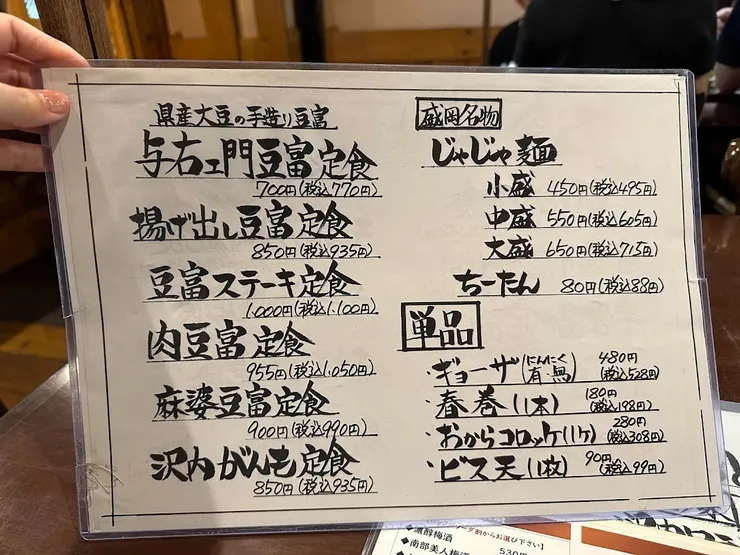 県産大豆の手造り豆富
与右ェ門豆富定食
700円(税込770円)
揚げ出し豆富定食
850円(税込935円)
豆富ステーキ定食
1.000円(税込1.100円)
肉豆富定食
955円(税込1.050円)
麻婆豆富定食
900円(税込990円)
沢内がんも定食
850円(税込935円)
盛岡名物
じゃじゃ麺
小盛 450円(税込495円)
中盛 550円(税込605円)
大盛 650円(税込715円)
ちーたん 80円(税込88円)
単品
・ギョーザ(にんにく有・無) 480円(税込528円)
・春巻(1本) 180円(税込198円)
・おからコロッケ(1ケ) 280円(税込308円)
・ビス天(1枚) 90円(税込99円)
割からお選び下さい】
◆濃醇梅酒
◆南部美人梅酒 530円